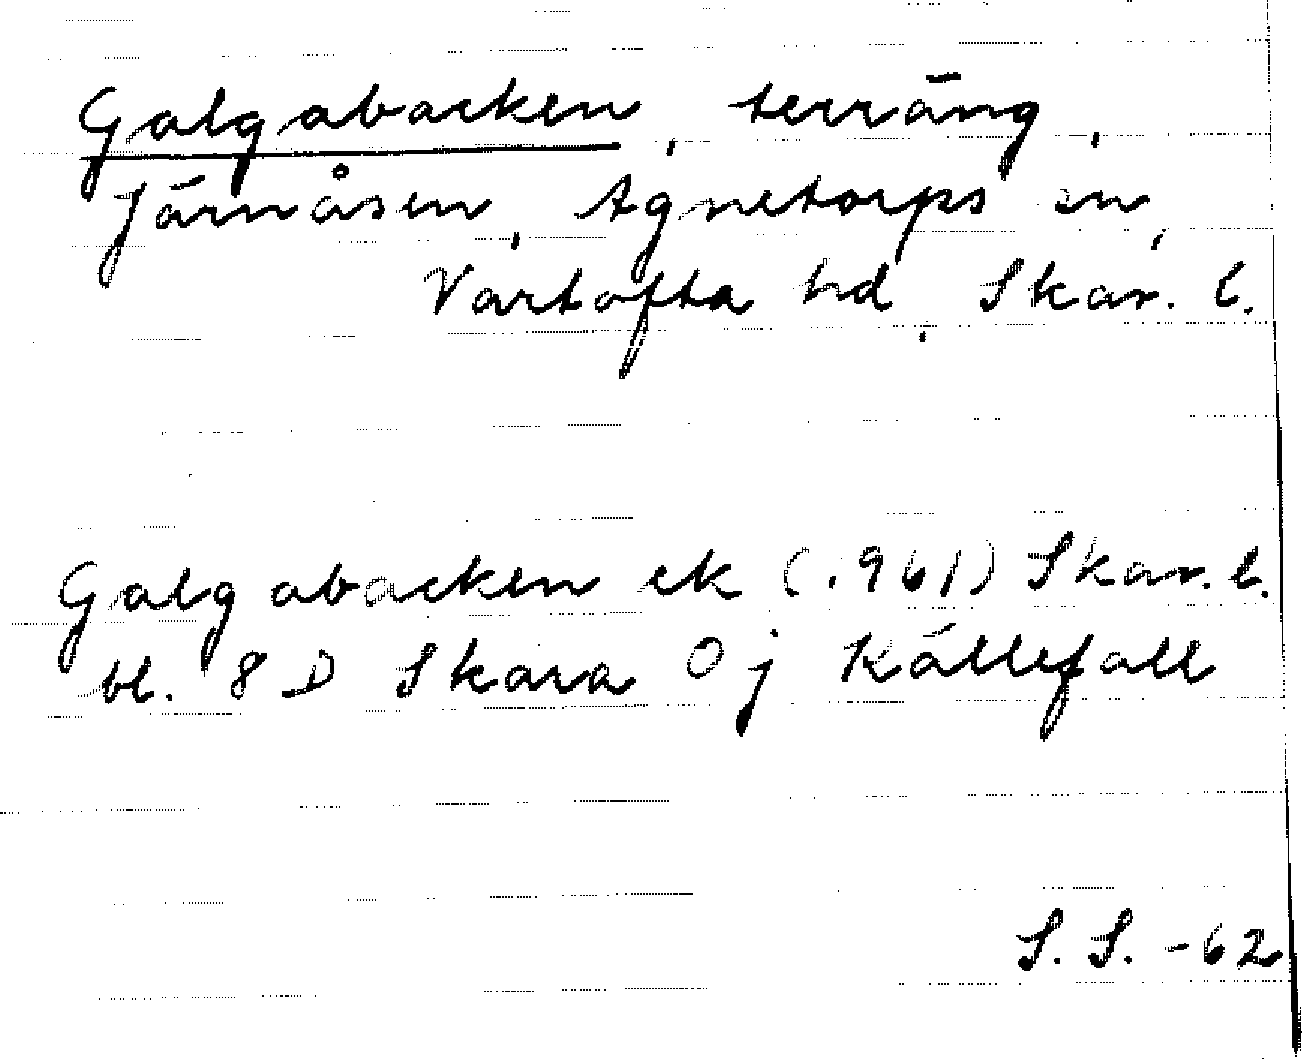 Galgabacken, terräng,
Järnåsen, Agnetorps sn,
Vartofta hd, Skar. l.
Galgabacken ek (1961) Skar. l.
bl. 8 D Skara 0 j Källefall
S. S. -62